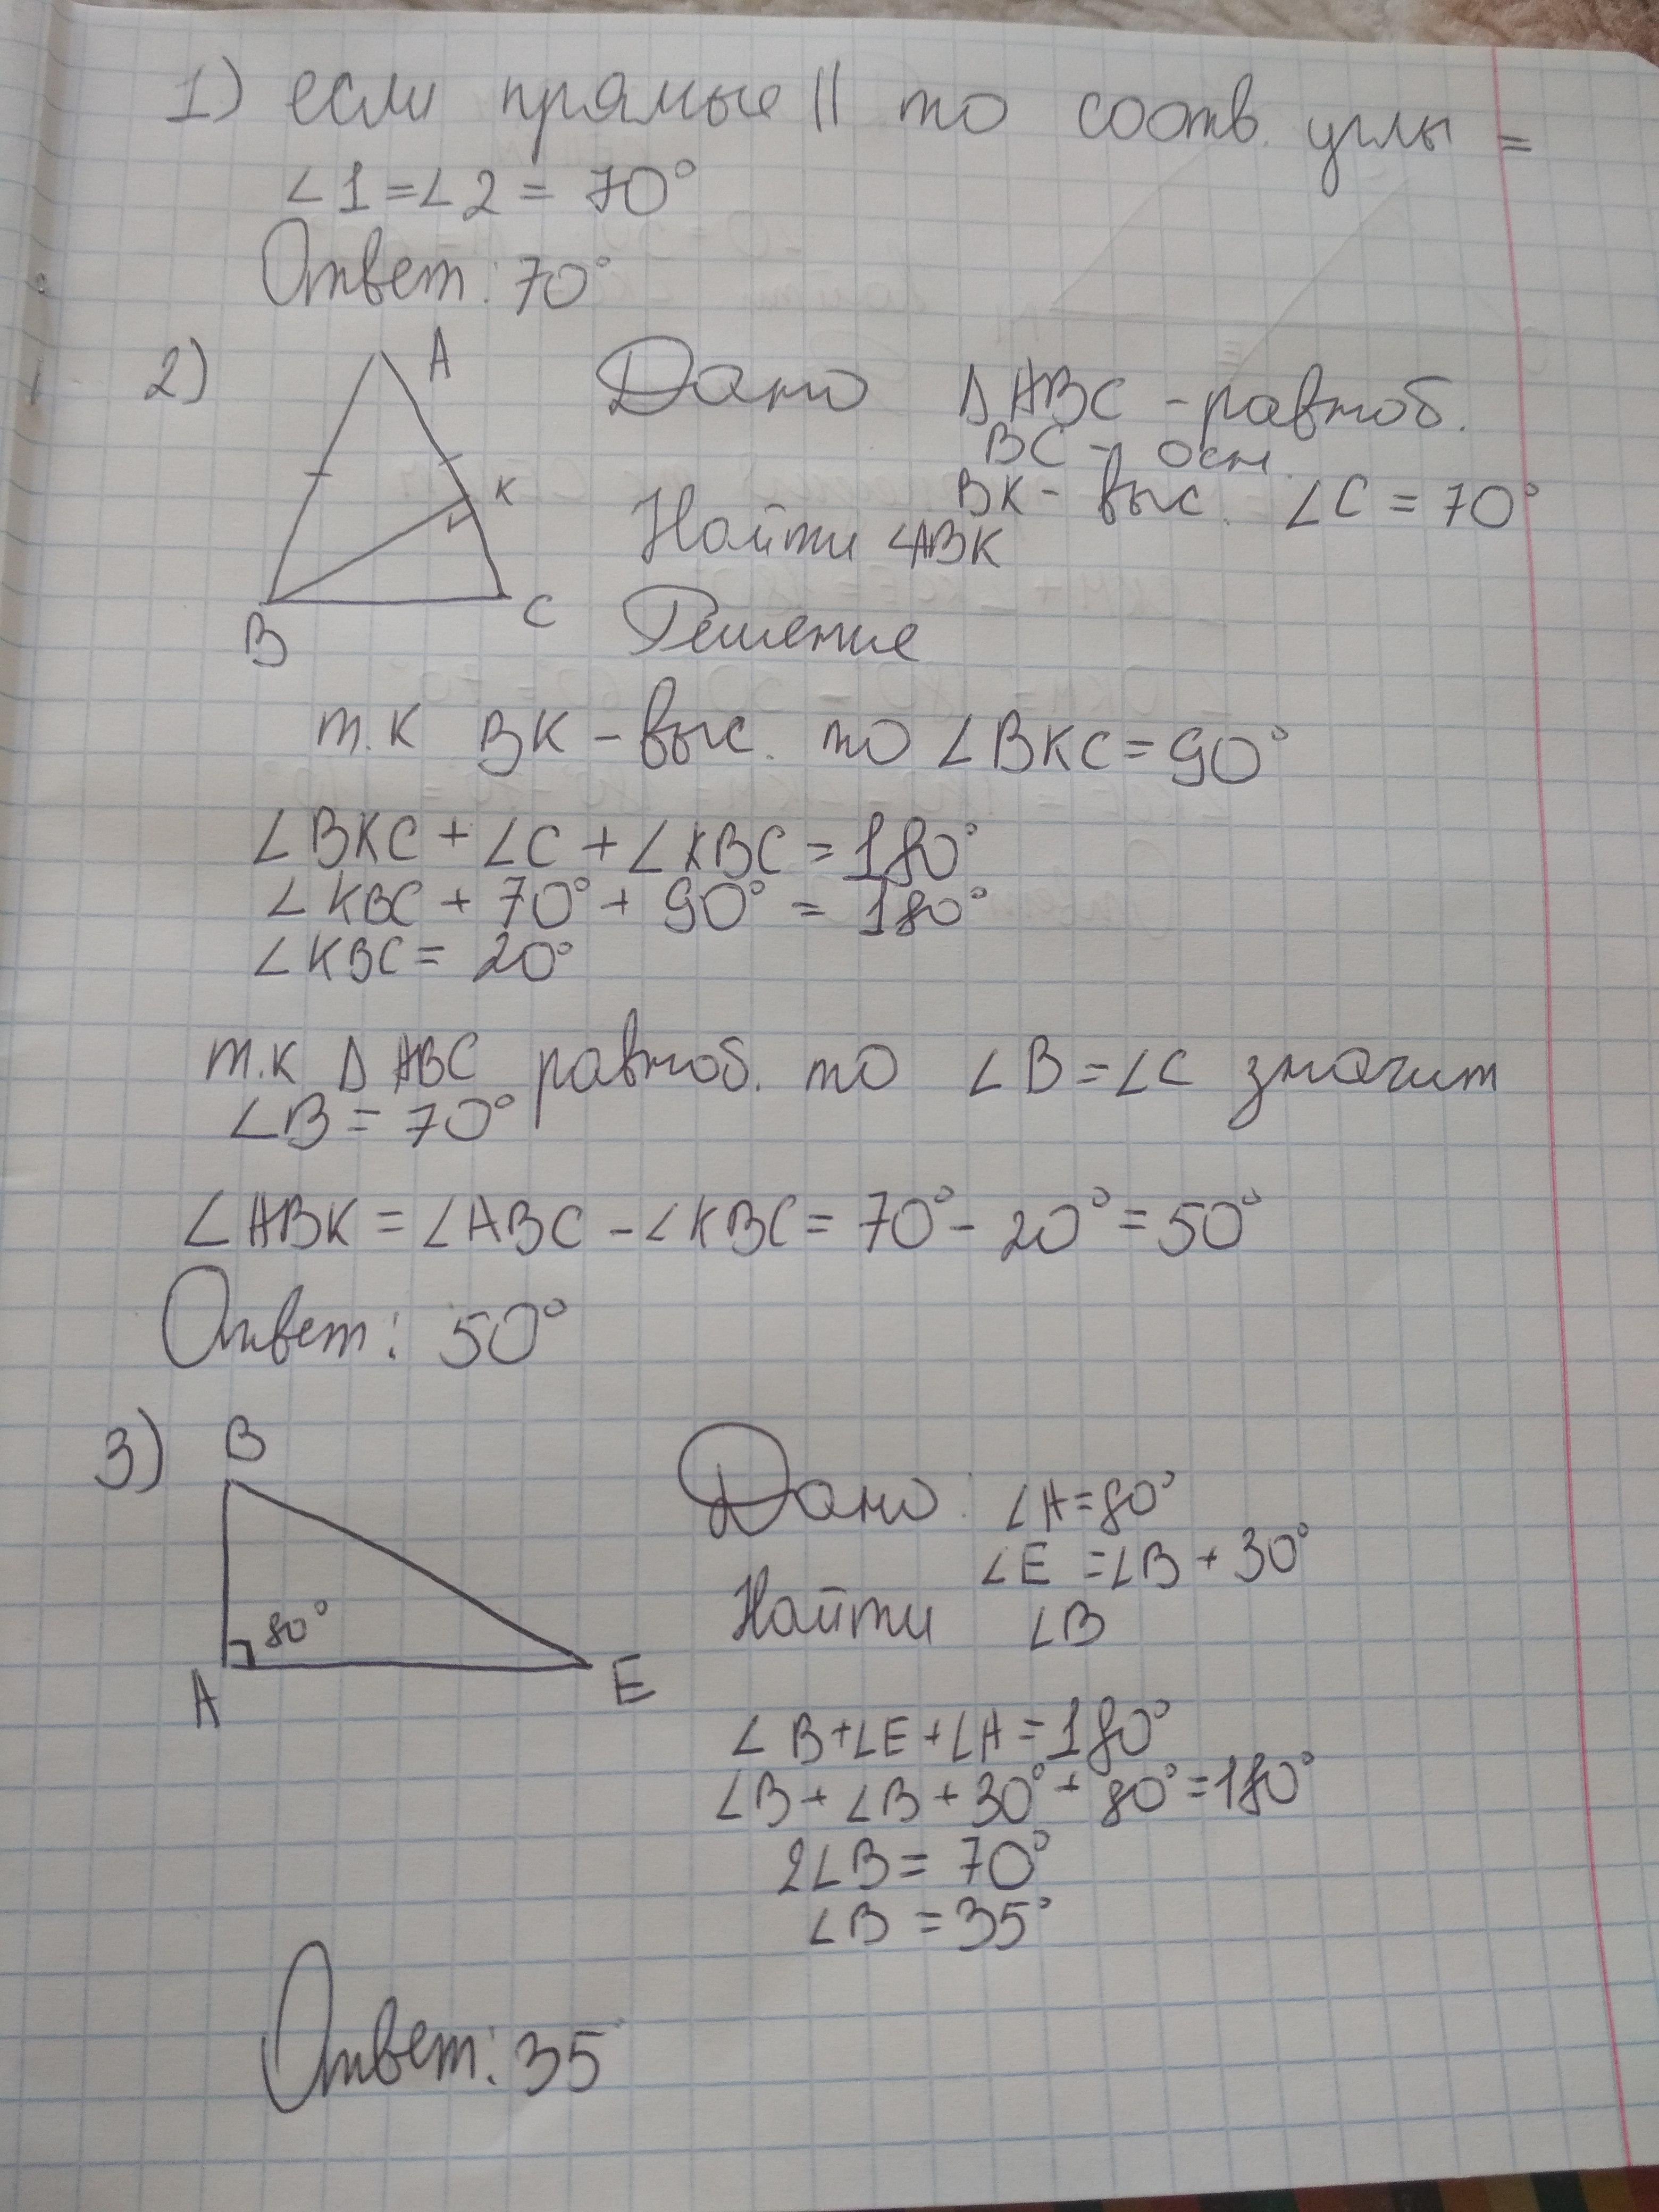 1) если прямые || то соотв. углы =
∠1=∠2 = 70°
Ответ: 70°
2)
A
K
B
C
Дано ΔABC - равноб.
BC - осн.
BK - выс. ∠C = 70°
Найти ∠ABK
Решение
т.к BK - выс. то ∠BKC = 90°
∠BKC + ∠C + ∠KBC = 180°
∠KBC + 70° + 90° = 180°
∠KBC = 20°
т.к ΔABC равноб. то ∠B = ∠C значит
∠B = 70°
∠ABK = ∠ABC - ∠KBC = 70° - 20° = 50°
Ответ: 50°
3)
B
80°
A
E
Дано: ∠A = 80°
∠E = ∠B + 30°
Найти ∠B
∠B + ∠E + ∠A = 180°
∠B + ∠B + 30° + 80° = 180°
2∠B = 70°
∠B = 35°
Ответ: 35